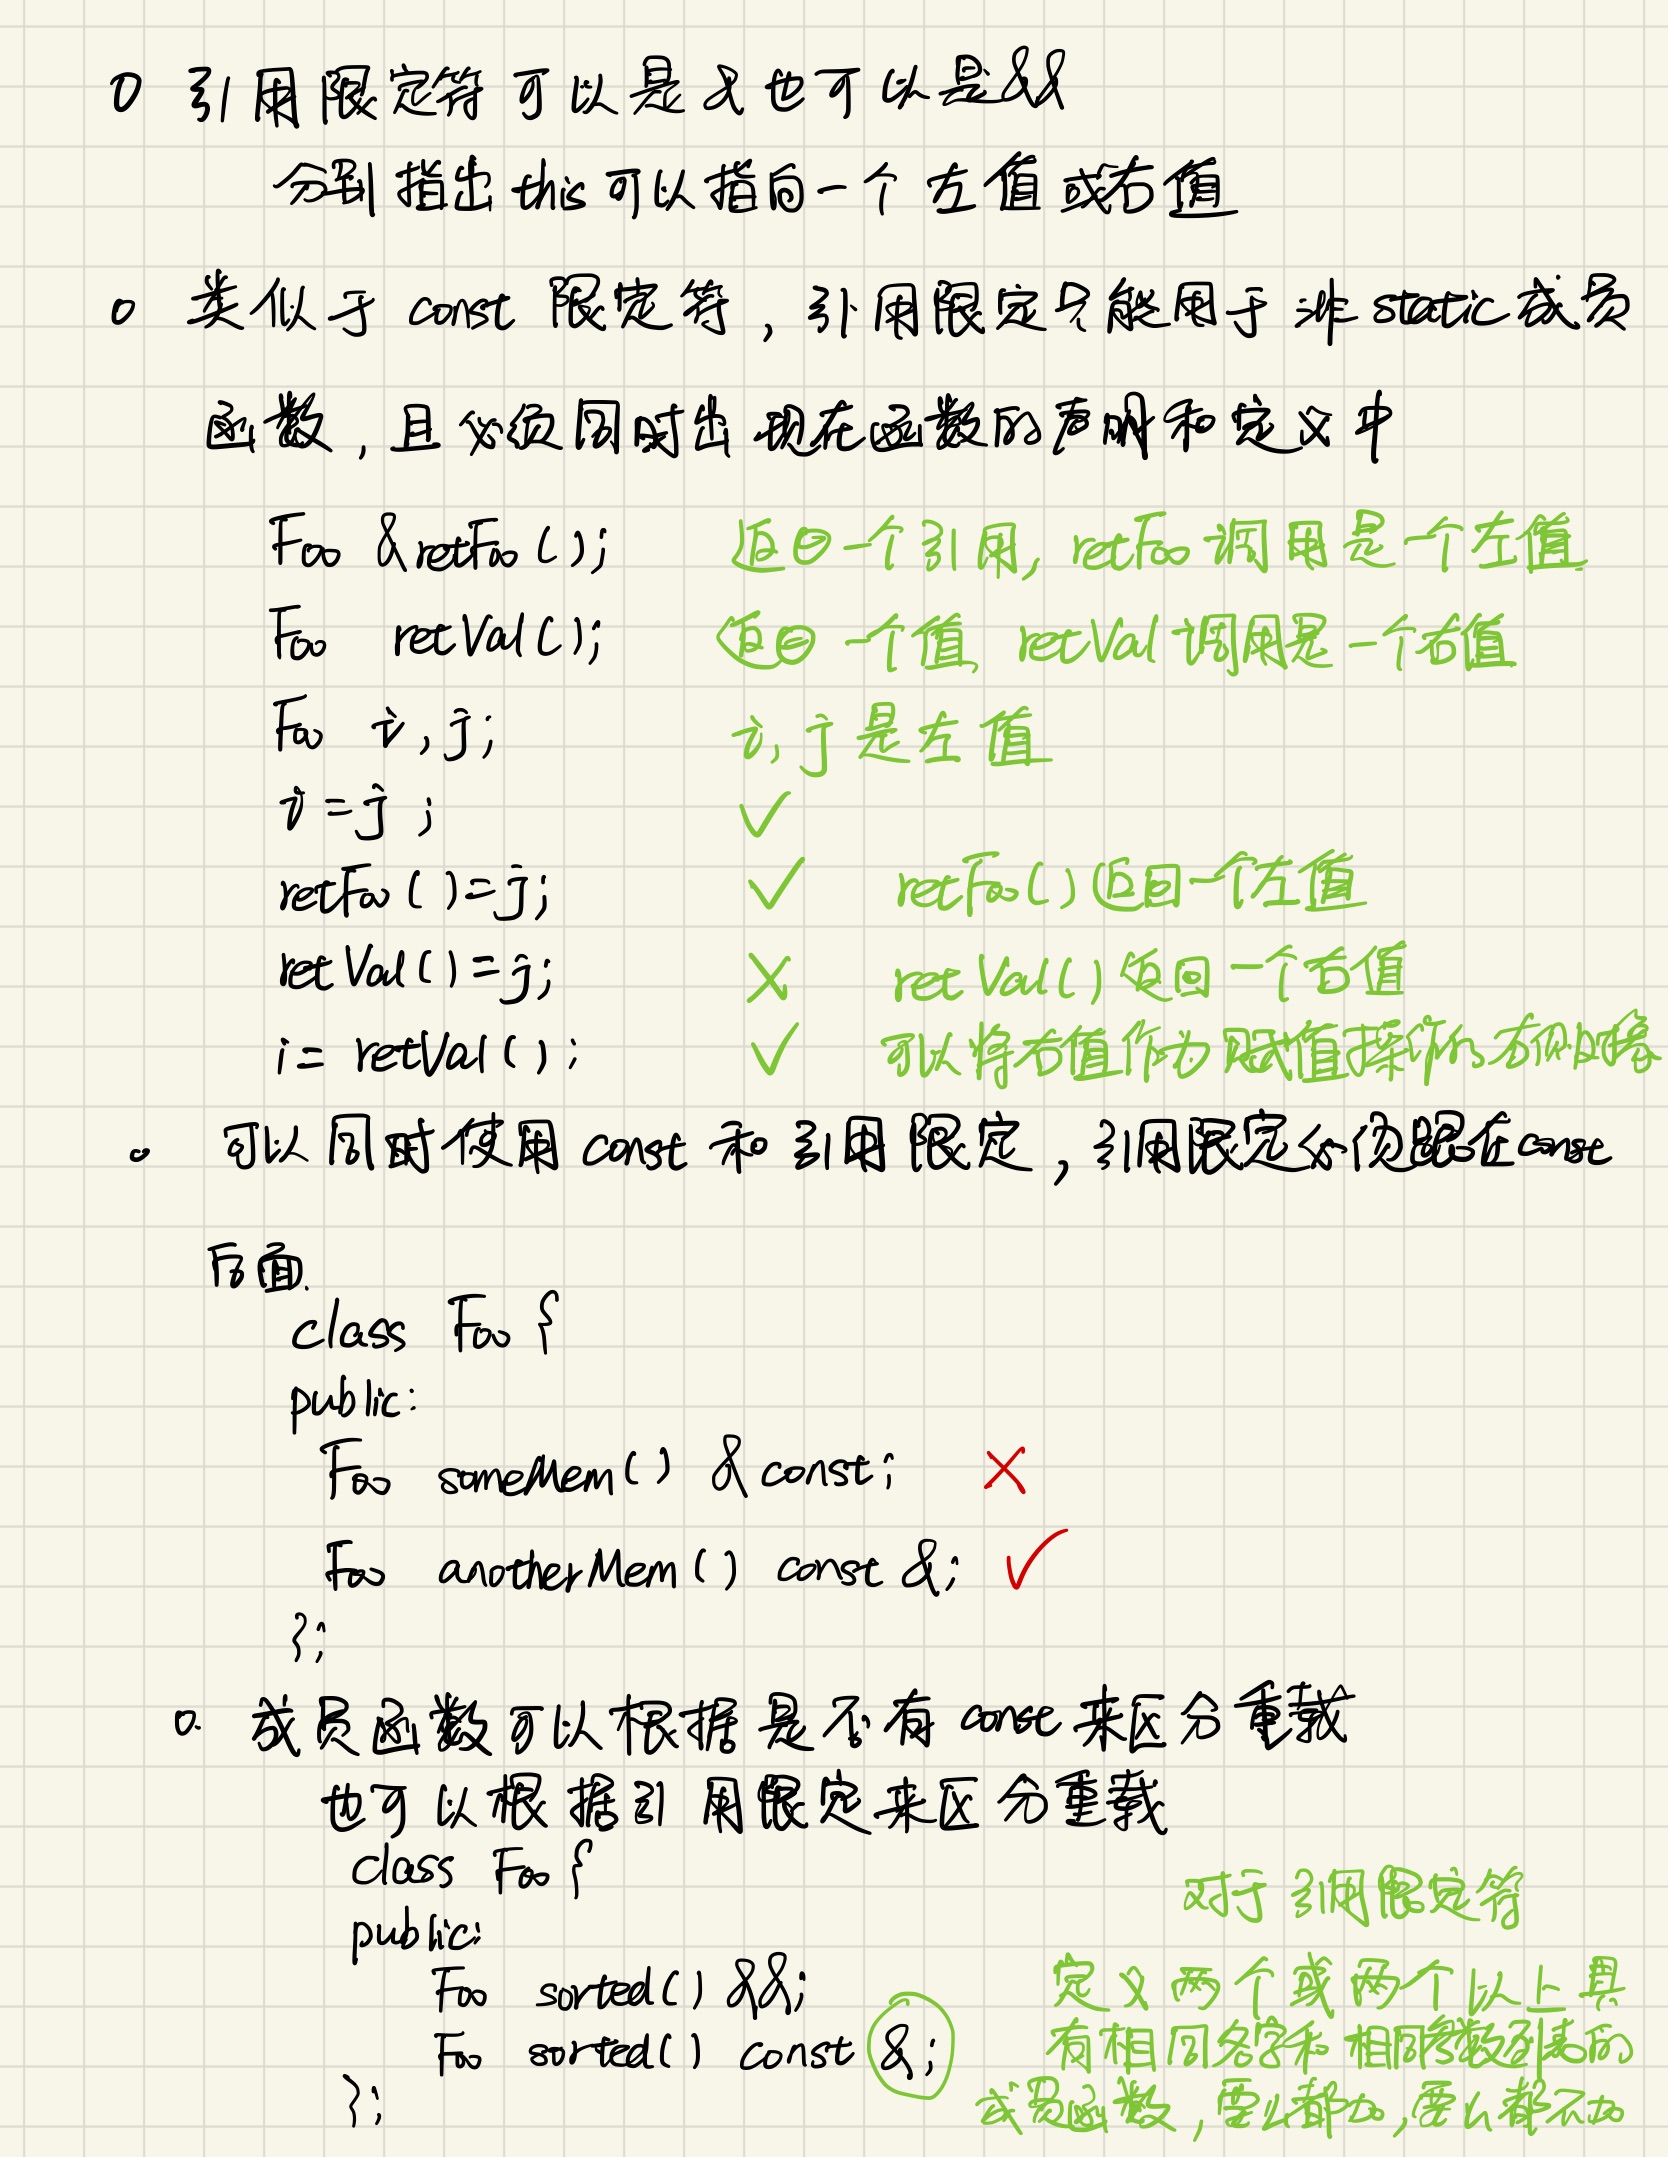 引用限定符可以是&也可以是&&
分别指出this可以指向一个左值或右值
类似于const限定符,引用限定只能用于非static成员
函数,且必须同时出现在函数的声明和定义中
Foo &retFoo(); 返回一个引用,retFoo调用是一个左值
Foo retVal(); 返回一个值,retVal调用是一个右值
Foo i,j; i,j是左值
i=j; ✓
retFoo()=j; ✓ retFoo()返回一个左值
retVal()=j; ✗ retVal()返回一个右值
i=retVal(); ✓ 可以将右值作为赋值操作的右侧对象
可以同时使用const和引用限定,引用限定必须跟在const
后面.
class Foo {
public:
Foo someMem() &const; ✗
Foo anotherMem() const &; ✓
};
成员函数可以根据是否有const来区分重载
也可以根据引用限定来区分重载
class Foo {
public:
Foo sorted() &&;
Foo sorted() const &;
};
对于引用限定符
定义两个或两个以上具
有相同名字和相同参数列表的
成员函数,要么都加,要么都不加